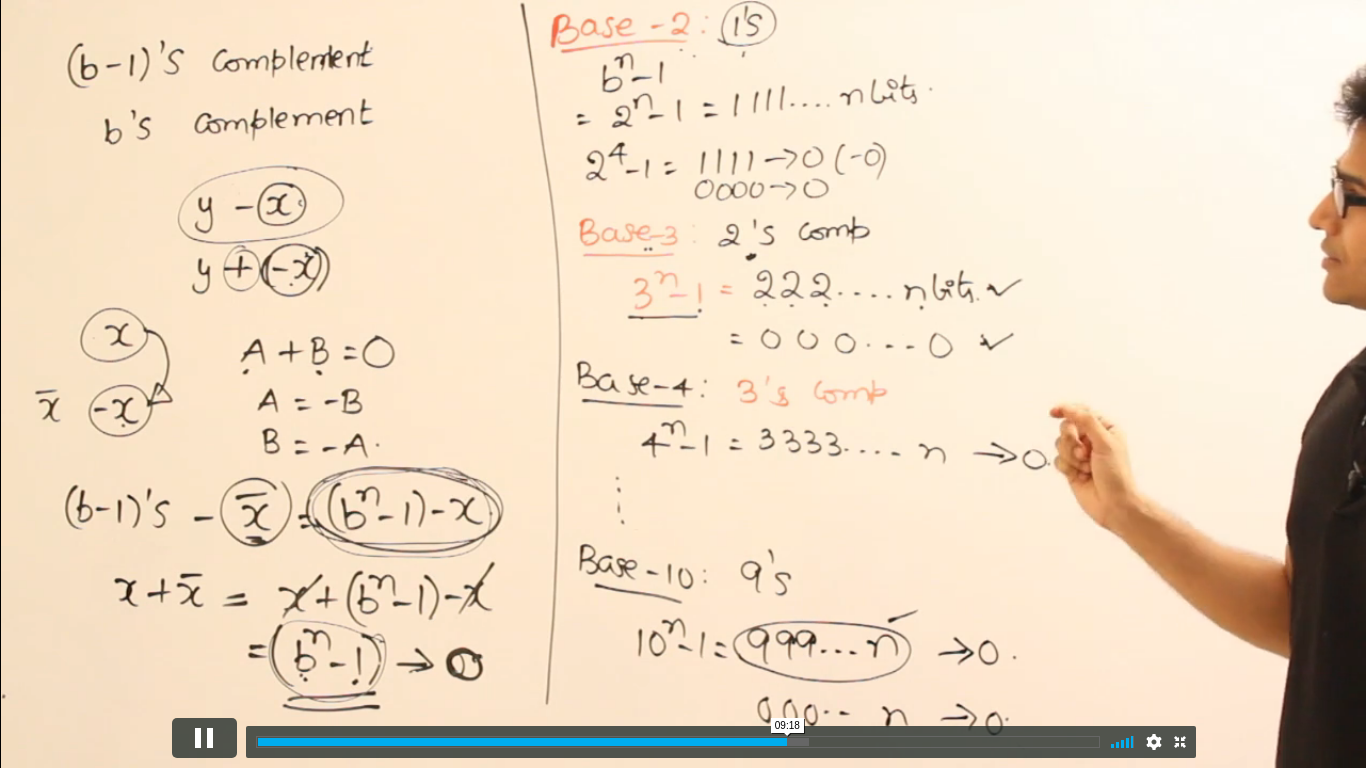 (b-1)'s complement
b's complement
y - x
y + (-x)
x
x̄ -x
A + B = 0
A = -B
B = -A.
(b-1)'s - x̄ = (bⁿ-1)-x
x + x̄ = x+(bⁿ-1)-x
= (bⁿ-1) → 0
Base-2: 1's
bⁿ-1
= 2ⁿ-1 = 1111.... n bits.
2⁴-1 = 1111 → 0 (-0)
0000 → 0
Base-3: 2's comp
3ⁿ-1 = 222.... n bits. ✓
= 000...0 ✓
Base-4: 3's comp
4ⁿ-1 = 3333.... n → 0.
Base-10: 9's
10ⁿ-1 = 999...n → 0.
000.. n → 0.
09:18